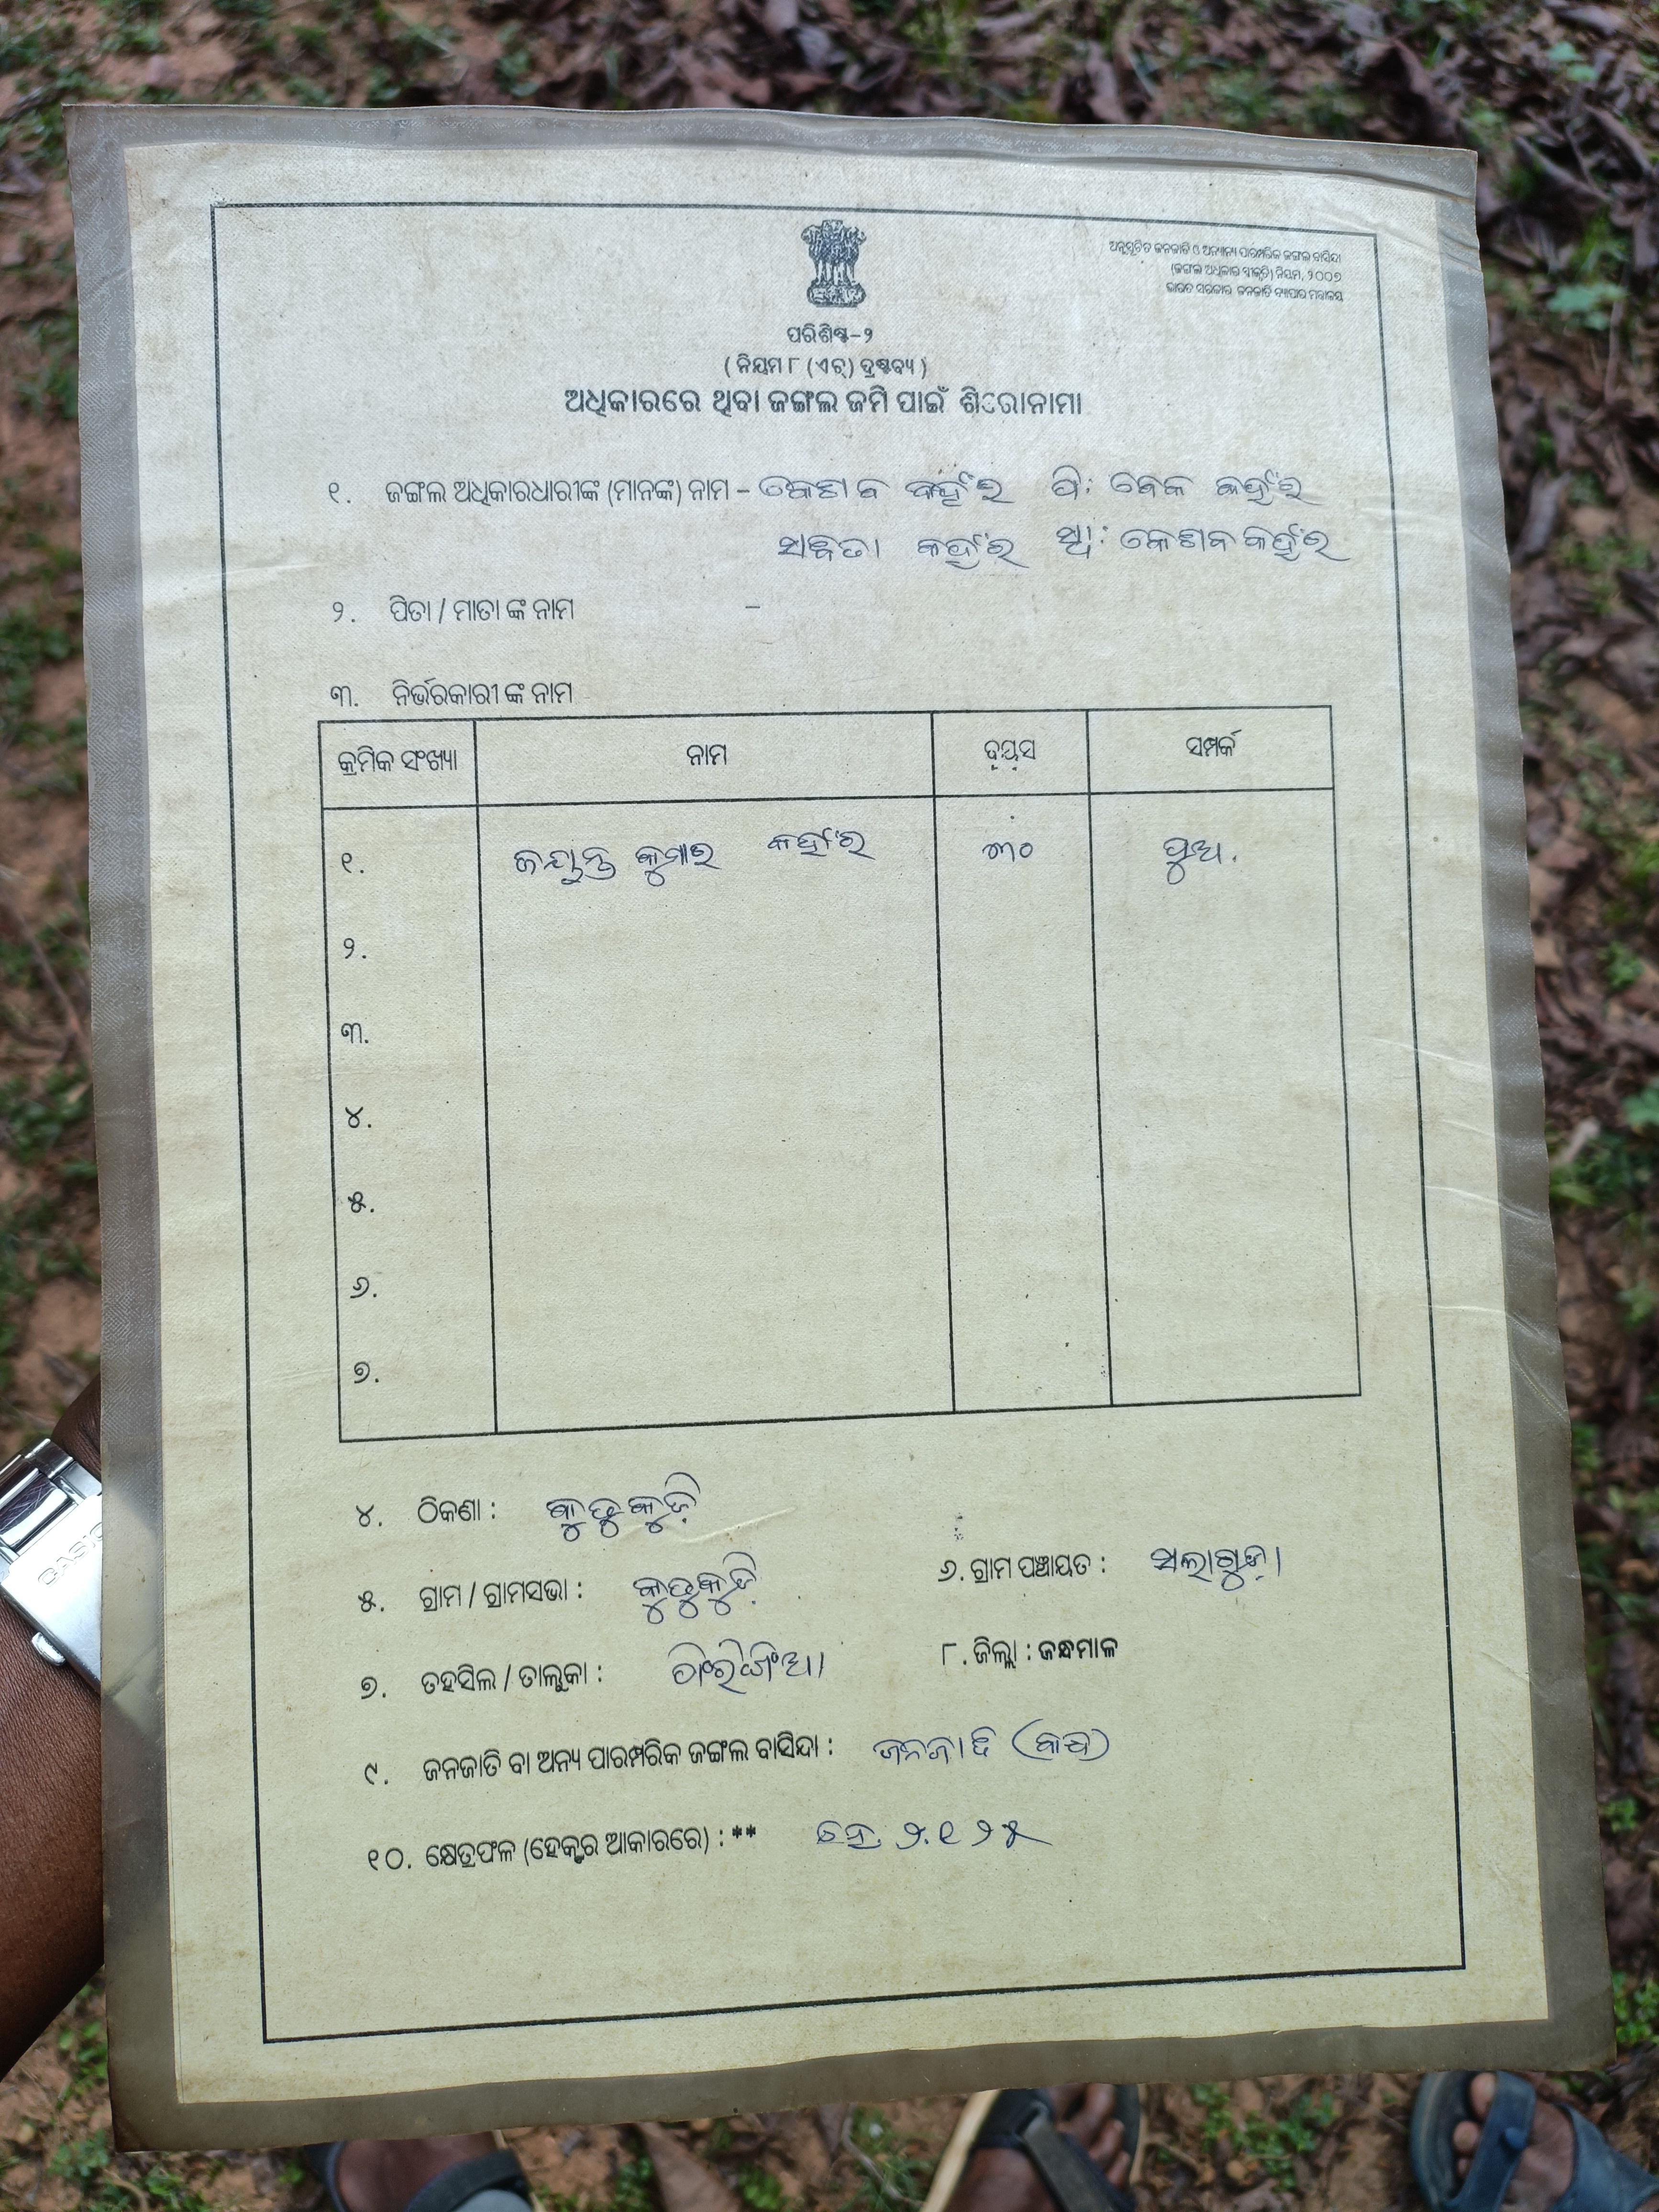 ଅନୁସୂଚିତ ଜନଜାତି ଓ ଅନ୍ୟାନ୍ୟ ପାରମ୍ପରିକ ଜଙ୍ଗଲ ବାସିନ୍ଦା
(ଜଙ୍ଗଲ ଅଧିକାର ସ୍ୱୀକୃତି) ନିୟମ, ୨୦୦୭
ଭାରତ ସରକାର ଜନଜାତି ବ୍ୟାପାର ମନ୍ତ୍ରାଳୟ
ପରିଶିଷ୍ଟ-୨
( ନିୟମ ୮ (ଏଚ୍) ଦ୍ରଷ୍ଟବ୍ୟ )
ଅଧିକାରରେ ଥିବା ଜଙ୍ଗଲ ଜମି ପାଇଁ ଶିରୋନାମା
୧. ଜଙ୍ଗଲ ଅଧିକାରଧାରୀଙ୍କ (ମାନଙ୍କ) ନାମ – କେଶବ କହଁର ପି: ବେକ କହଁର
ସଞ୍ଜିତା କହଁର ସ୍ୱା: କେଶବ କହଁର
୨. ପିତା / ମାତା ଙ୍କ ନାମ –
୩. ନିର୍ଭରକାରୀ ଙ୍କ ନାମ
କ୍ରମିକ ସଂଖ୍ୟା ନାମ ବୟସ ସମ୍ପର୍କ
୧. ଜୟନ୍ତ କୁମାର କହଁର ୩୦ ପୁଅ.
୨.
୩.
୪.
୫.
୬.
୭.
୪. ଠିକଣା : କୁଡୁକୁଡ଼ି
୫. ଗ୍ରାମ / ଗ୍ରାମସଭା : କୁଡୁକୁଡ଼ି ୬. ଗ୍ରାମ ପଞ୍ଚାୟତ : ସଲାଗୁଡ଼ା
୭. ତହସିଲ / ତାଲୁକା : ଫିରିଙ୍ଗିଆ ୮. ଜିଲ୍ଲା : କନ୍ଧମାଳ
୯. ଜନଜାତି ବା ଅନ୍ୟ ପାରମ୍ପରିକ ଜଙ୍ଗଲ ବାସିନ୍ଦା : ଜନଜାତି (କନ୍ଧ)
୧୦. କ୍ଷେତ୍ରଫଳ (ହେକ୍ଟର ଆକାରରେ) : ** ହେ. ୨.୧୨୫